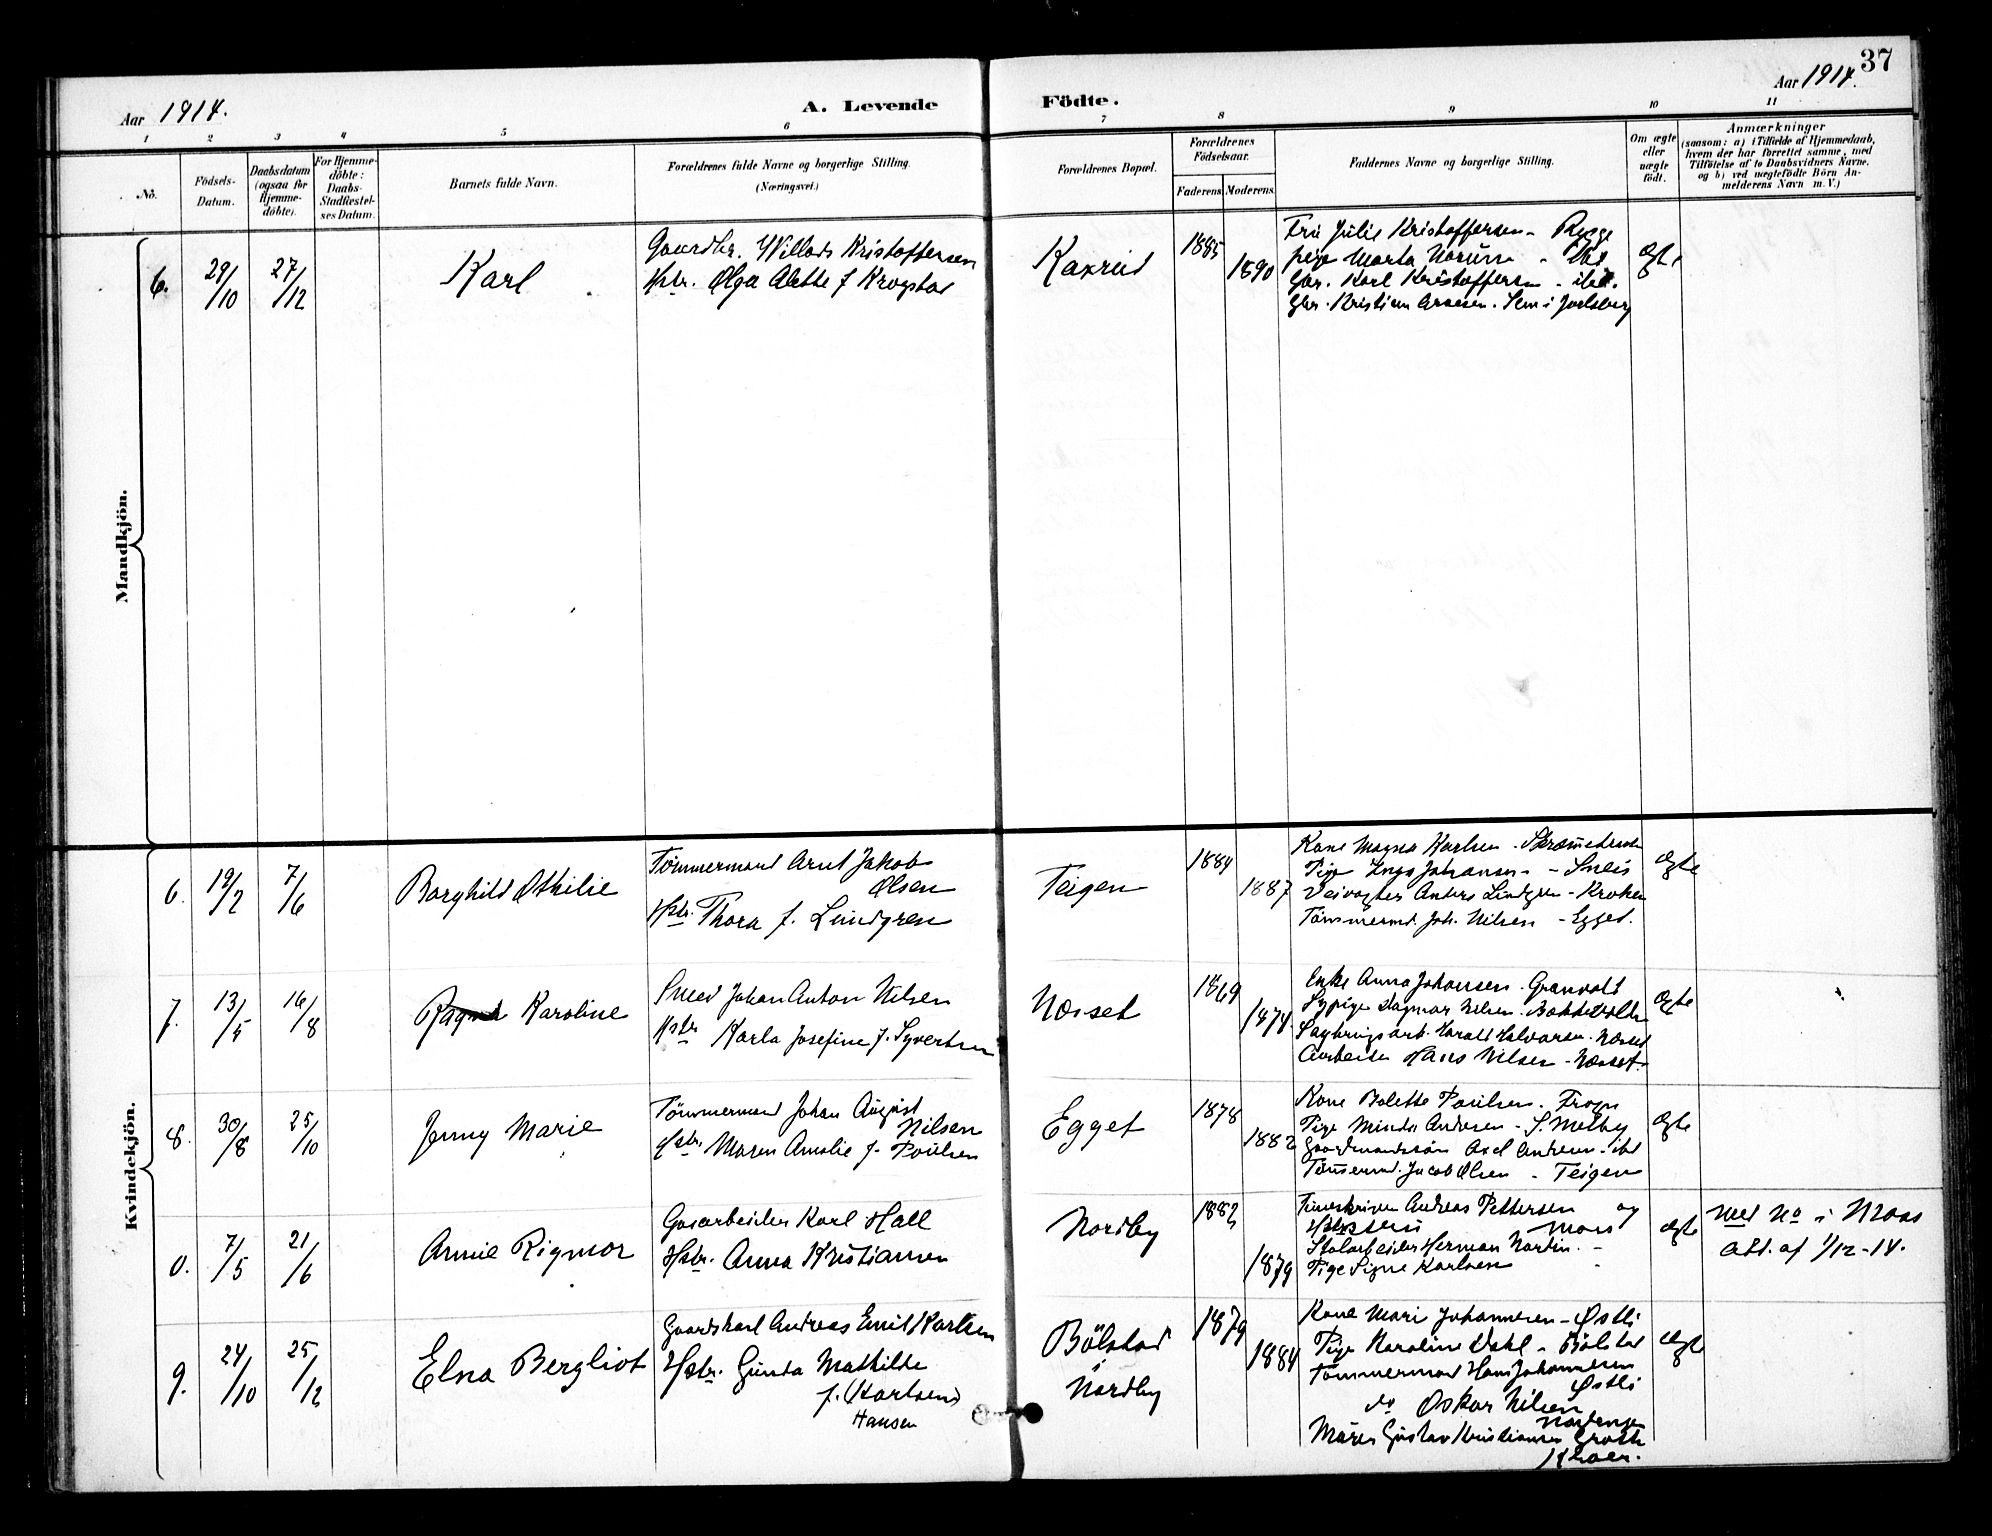 37
Aar 1914.
A. Levende
Födte.
Aar 1914.
1 2 3 4 5 6 7 8 9 10 11
No.
Födsels-
Datum.
Daabsdatum
(ogsaa for
Hjemme-
döbte).
For Hjemme-
döbte:
Daabs-
Stadfæstel-
ses Datum.
Barnets fulde Navn.
Forældrenes fulde Navne og borgerlige Stilling.
(Næringsvei.)
Forældrenes Bopæl.
Forældrenes
Födselsaar.
Faderens. Moderens.
Faddernes Navne og borgerlige Stilling.
Om ægte
eller
uægte
födt.
Anmærkninger
(saasom: a) i Tilfælde af Hjemmedaab,
hvem der har forrettet samme, med
Tilföielse af to Daabsvidners Navne.
og b) ved uægtefödte Börn An-
melderens Navn m. V.)
Mandkjön.
6.
29/10
27/12
Karl
Gaardbr. Willads Kristoffersen
Hstr. Olga Alette f Krogstad
Kaxrud
1885
1890
Fru Julie Kristoffersen - Rygge
pige Marta Norum - ibd
Gbr. Karl Kristoffersen - ibd.
Gbr. Kristian Aroesen. Sem i Jarlsberg
Ægte
Kvindekjön.
6.
19/2
7/6
Borghild Othilie
Tömmermand Arnt Jakob
Olsen
Hstr. Thora f. Lindgren
Teigen
1884
1887
Kone Magna Karlsen -
Pige Inga Johansen -
Veivogter Anders Lindgren - Kroken
Tömmermd. Joh. Nilsen - Egget.
Ægte
7.
13/5
16/8
Ragna Karoline
Smed Johan Anton Nilsen
Hstr Karla Josefine f. Syvertsen
Næsset
1869
1874
Enke Anna Johansen - Granholt
Sypige Dagmar Nilsen -
Sagbrugsarb. Harald Halvorsen - Næsset
Arbeider Hans Nilsen - Næsset.
Ægte
8.
30/8
25/10
Jenny Marie
Tömmermand Johan August
Nilsen
Hstr. Maren Amalie f. Paulsen
Egget
1878
1882
Kone Bolette Paulsen. Frogn
Pige Minda Andersen - S. Melby
Gaardmandssön Axel Andersen - ibd
Tömmermd. Jacob Olsen - Teigen
Ægte
0.
7/5
21/6
Annie Rigmor
Gasarbeider Karl Hall
Hstr. Anna Kristiansen
Nordby
1882
1879
Timeskriver Andreas Pettersen og
Hustru Moss
Stolarbeider Herman Martin. -
Pige Signe Karlsen
Ægte
Med No i Moss
att. af 1/12-14.
9.
24/10
25/12
Elna Bergliot
Gaardskarl Andreas Emil Karlsen
Hstr. Gunda Mathilde
f. (Karlsen)
Hansen
Bölstad
i
Nordby
1879
1884
Kone Mari Johannesen - Østli
Pige Karoline Dahl - Bölstad
Tömmermand Hans Johannesen
Østli
do Oskar Nilsen
Murer Gustav Kristiansen
Kroer.
Ægte